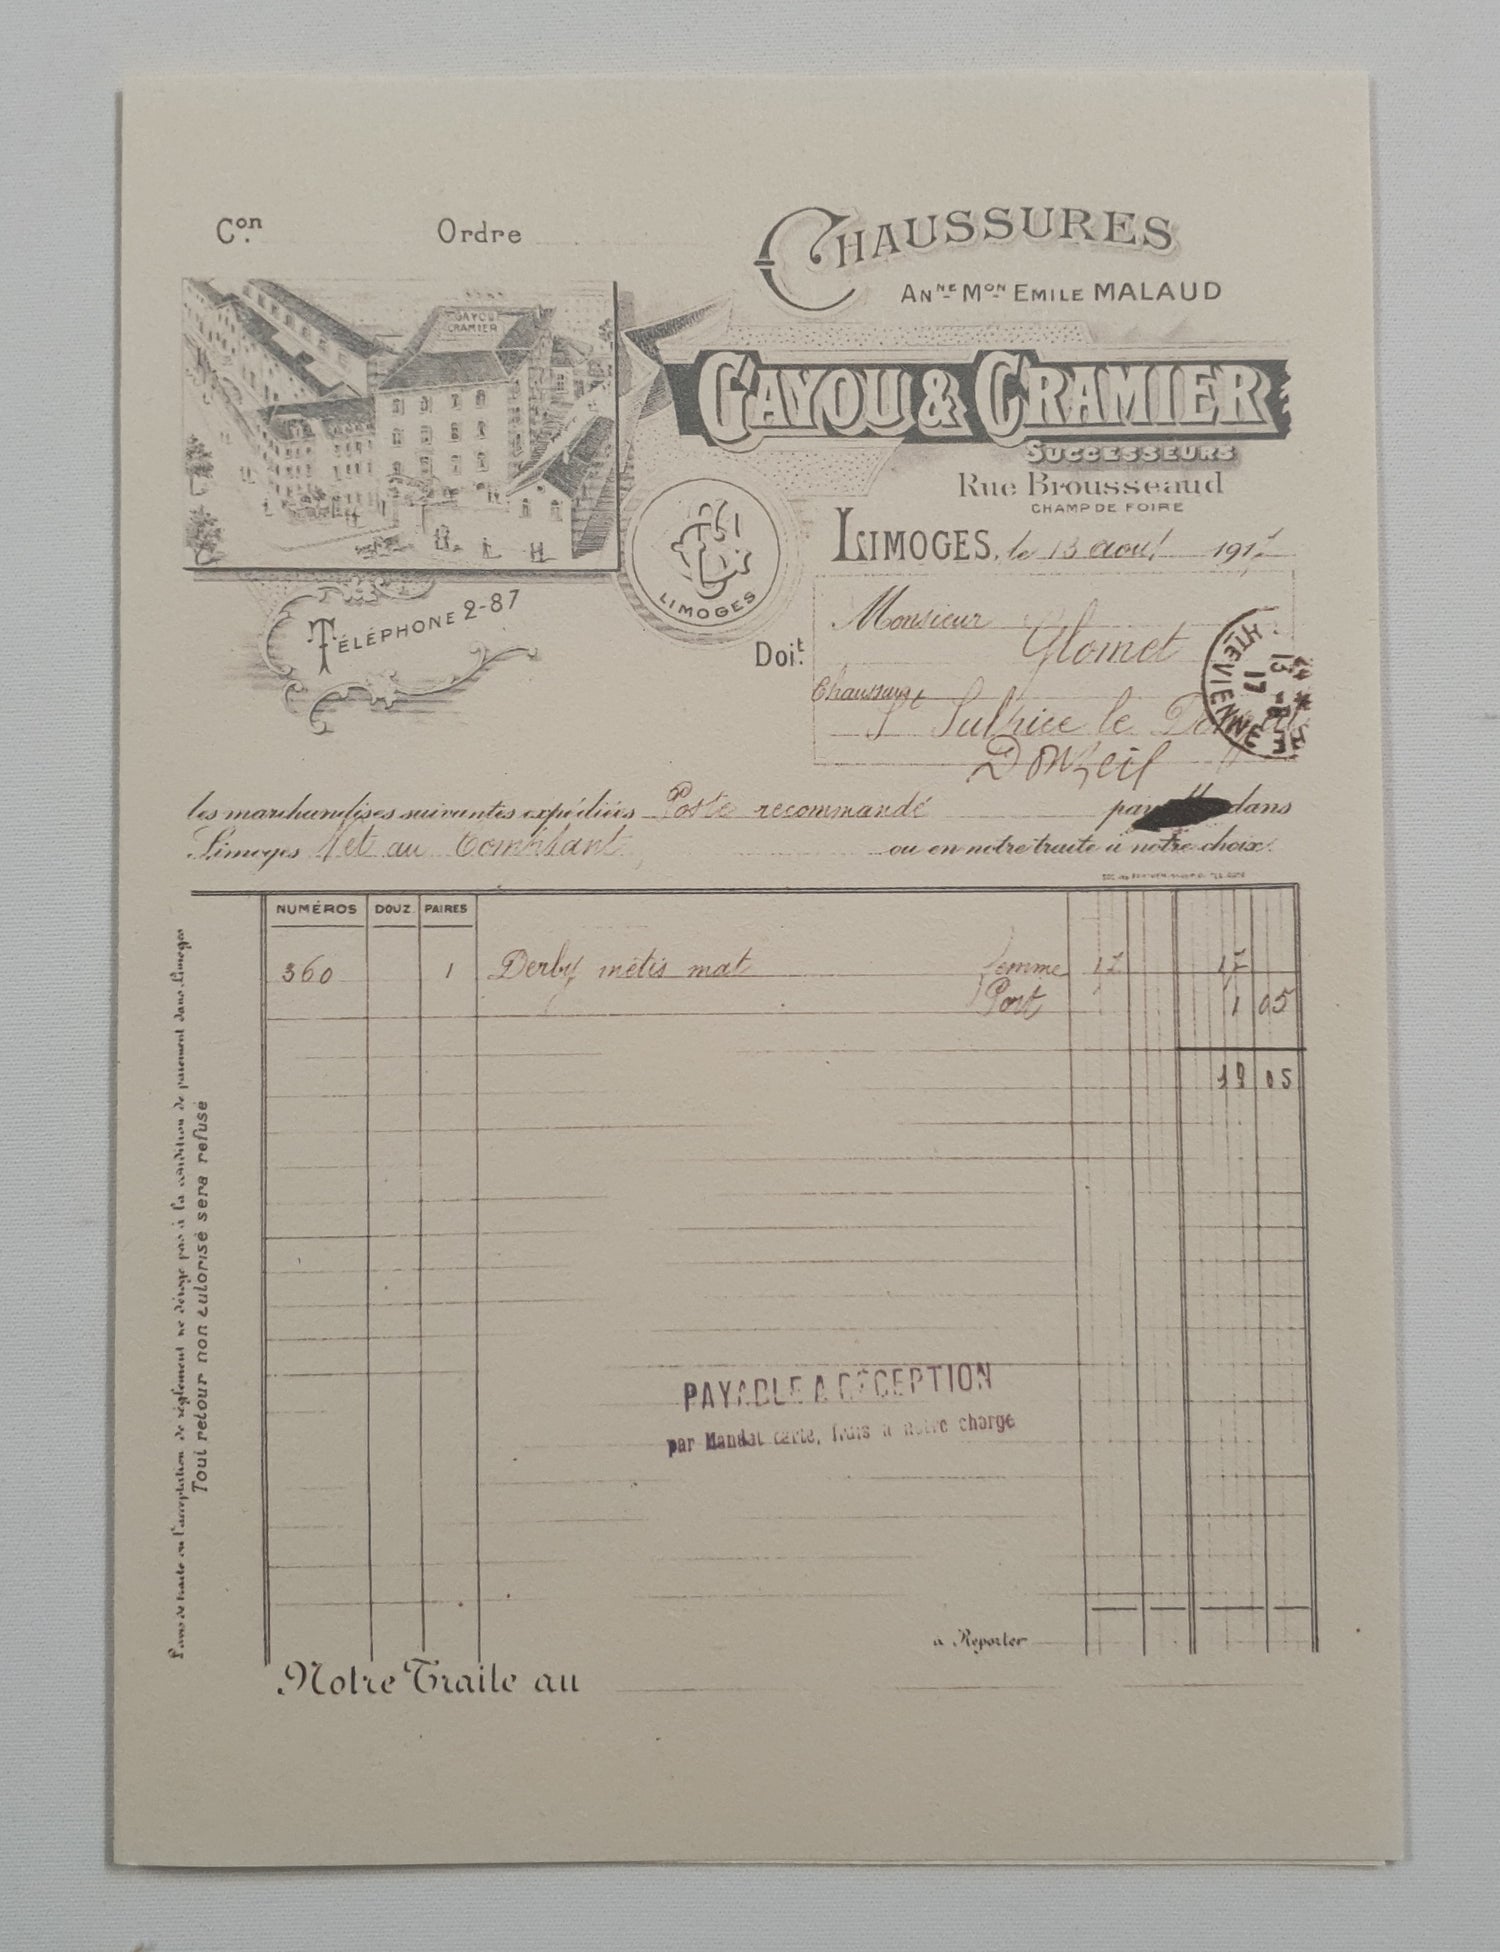 Con. Ordre
CHAUSSURES
ANNE MON EMILE MALAUD
GAYOU & CRAMIER
GAYOU
CRAMIER
SUCCESSEURS
Rue Brousseaud
CHAMP DE FOIRE
LIMOGES, le 13 aout 1917
LIMOGES
TÉLÉPHONE 2-87
Monsieur Glomet
Doit.
Chaussures
St Sulpice le
Donzeil
HTE VIENNE
13 - 8
17
les marchandises suivantes expédiées Poste recommandé dans
Limoges Net au Comptant ou en notre traite à notre choix.
NUMÉROS DOUZ. PAIRES
360 1 Derby métis mat femme 17 17
Port 1 05
18 05
L'avis de traite ou l'acceptation de réglement ne déroge pas à la condition de paiement dans Limoges
Tout retour non autorisé sera refusé
PAYABLE A RÉCEPTION
par Mandat carte, frais à notre charge
à Reporter
Notre Traite au